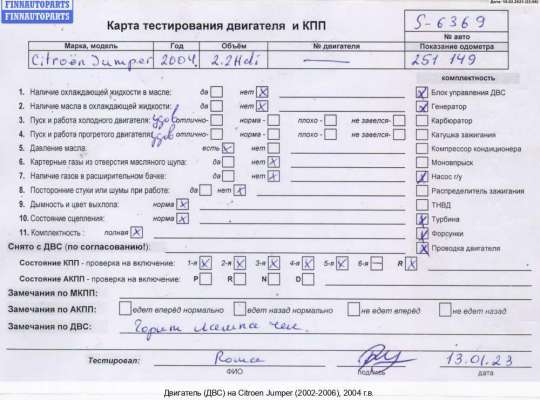 FINNAUTOPARTS
FINNAUTOPARTS
Date: 18.02.2023 (22:59)
Карта тестирования двигателя и КПП
S-6369
№ авто
Марка, модель Год Объём № двигателя Показание одометра
Citroën Jumper 2004 2.2Hdi — 251 149
комплектность
1. Наличие охлаждающей жидкости в масле: да нет X
X Блок управления ДВС
2. Наличие масла в охлаждающей жидкости: да нет X
X Генератор
3. Пуск и работа холодного двигателя: удов отлично- норма - плохо - не завелся-
Карбюратор
4. Пуск и работа прогретого двигателя: удов отлично- норма - плохо - не завелся-
Катушка зажигания
5. Давление масла: есть X нет
Компрессор кондиционера
6. Картерные газы из отверстия масляного щупа: да нет X
Моновпрыск
7. Наличие газов в расширительном бачке: да нет X
X Насос г/у
8. Посторонние стуки или шумы при работе: да нет X
Распределитель зажигания
9. Дымность и цвет выхлопа: норма X
ТНВД
10. Состояние сцепления: норма X
X Турбина
11. Комплектность : полная X
X Форсунки
Снято с ДВС (по согласованию!):
X Проводка двигателя
Состояние КПП - проверка на включение: 1-я X 2-я X 3-я X 4-я X 5-я X 6-я — R X
Состояние АКПП - проверка на включение: P R N D
Замечания по МКПП:
Замечания по АКПП: едет вперёд нормально едет назад нормально не едет вперёд не едет назад
Замечания по ДВС: Горит лампа чек.
Тестировал: Roma 13.01.23
ФИО подпись дата
Двигатель (ДВС) на Citroen Jumper (2002-2006), 2004 г.в.